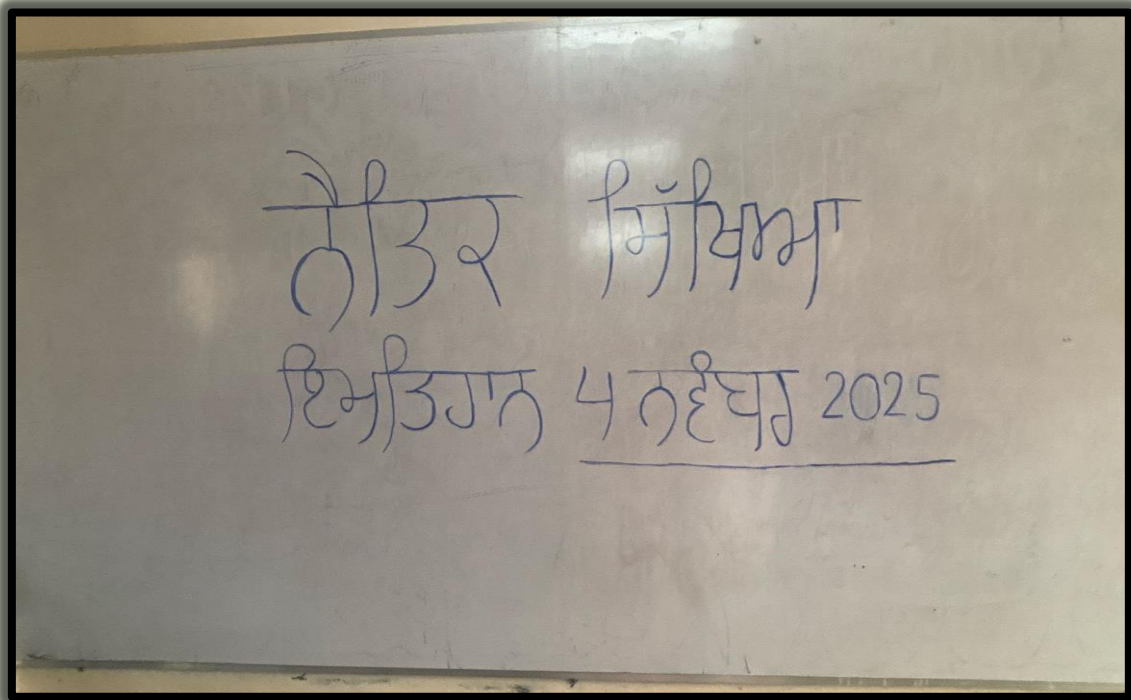 ਨੈਤਿਕ ਸਿੱਖਿਆ
ਇਮਤਿਹਾਨ 4 ਨਵੰਬਰ 2025